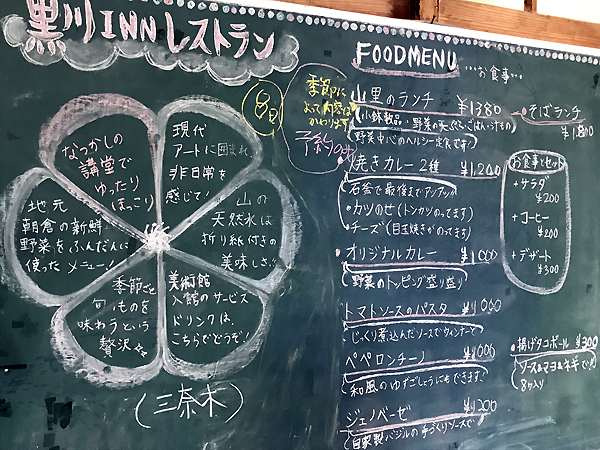 黒川INNレストラン
なつかしの
講堂で
ゆったり
ほっこり
現代
アートに囲まれ
非日常を
感じて!
山の
天然水は
折り紙付きの
美味しさ
美術館
入館のサービス
ドリンクは
こちらでどうぞ!
季節ごと
旬のものを
味わうという
贅沢
地元
朝倉の新鮮
野菜をふんだんに
使ったメニュー!
(三奈木)
FOODMENU …お食事…
季節に
よって内容は
かわります
予約のみ
山里のランチ ¥1380
野菜中心のヘルシー定食です!
そばランチ
¥1,800
焼きカレー2種 ¥1,200
石釜で最後までアツアツ
・カツのせ(トンカツのってます)
・チーズ(目玉焼きがのってます)
・オリジナルカレー ¥1000
野菜のトッピング盛り盛り
トマトソースのパスタ ¥1000
じっくり煮込んだソースでウィンナーと
ペペロンチーノ ¥1000
和風のゆずこしょうにもできます
ジェノベーゼ ¥1200
自家製バジルの手づくりソースで
お食事とセット
+サラダ
¥200
+コーヒー
¥200
+デザート
¥300
・揚げタコボール ¥300
ソース&マヨ&ネギで
8ヶ入り